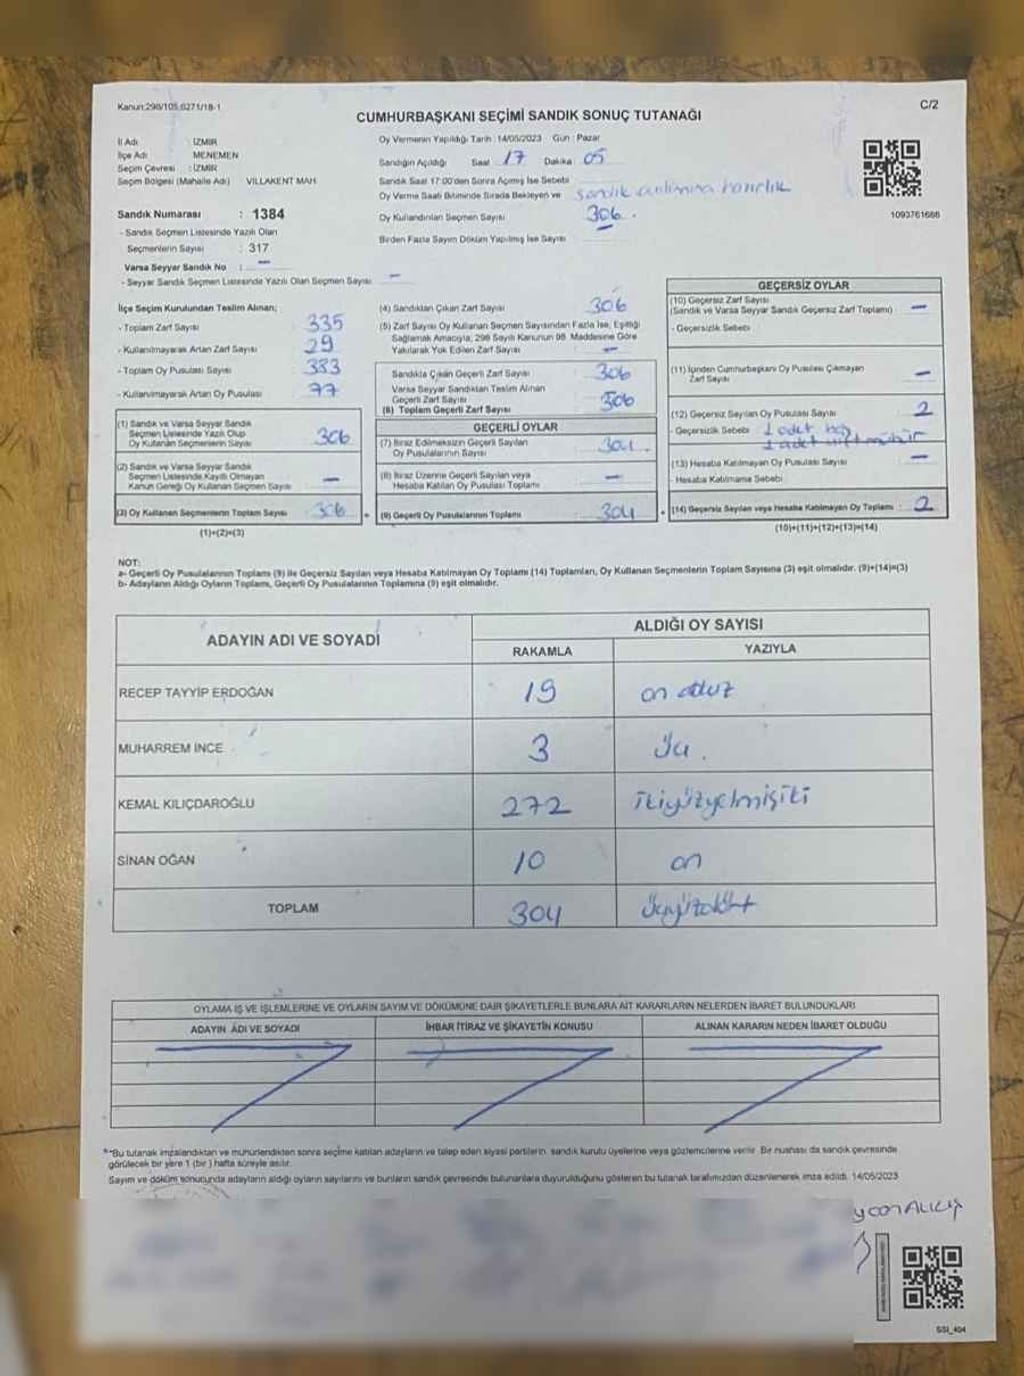 Kanun:298/105,6271/18-1
C/2
CUMHURBAŞKANI SEÇİMİ SANDIK SONUÇ TUTANAĞI
İl Adı : İZMİR
İlçe Adı MENEMEN
Seçim Çevresi : İZMİR
Seçim Bölgesi (Mahalle Adı) VILLAKENT MAH.
Sandık Numarası : 1384
- Sandık Seçmen Listesinde Yazılı Olan
Seçmenlerin Sayısı : 317
Varsa Seyyar Sandık No : —
- Seyyar Sandık Seçmen Listesinde Yazılı Olan Seçmen Sayısı: —
Oy Vermenin Yapıldığı Tarih : 14/05/2023 Gün : Pazar
Sandığın Açıldığı Saat 17 Dakika 05
Sandık Saat 17:00'den Sonra Açımış İse Sebebi
Oy Verme Saati Bitiminde Sırada Bekleyen ve sandık hazırlık
Oy Kullandırılan Seçmen Sayısı 306.
Birden Fazla Sayım Döküm Yapılmış İse Sayısı
1093761666
İlçe Seçim Kurulundan Teslim Alınan;
- Toplam Zarf Sayısı 335
- Kullanılmayarak Artan Zarf Sayısı 29
- Toplam Oy Pusulası Sayısı 383
- Kullanılmayarak Artan Oy Pusulası 77
(1) Sandık ve Varsa Seyyar Sandık
Seçmen Listesinde Yazılı Olup
Oy Kullanan Seçmenlerin Sayısı 306
(2) Sandık ve Varsa Seyyar Sandık
Seçmen Listesinde Kayıtlı Olmayan
Kanun Gereği Oy Kullanan Seçmen Sayısı —
(3) Oy Kullanan Seçmenlerin Toplam Sayısı 306
(1)+(2)=(3)
(4) Sandıktan Çıkan Zarf Sayısı 306
(5) Zarf Sayısı Oy Kullanan Seçmen Sayısından Fazla İse, Eşitliği
Sağlamak Amacıyla, 298 Sayılı Kanunun 98. Maddesine Göre
Yakılarak Yok Edilen Zarf Sayısı —
Sandıkta Çıkan Geçerli Zarf Sayısı 306
Varsa Seyyar Sandıktan Teslim Alınan
Geçerli Zarf Sayısı
(6) Toplam Geçerli Zarf Sayısı 306
GEÇERLİ OYLAR
(7) İtiraz Edilmeksizin Geçerli Sayılan
Oy Pusulalarının Sayısı 304
(8) İtiraz Üzerine Geçerli Sayılan veya
Hesaba Katılan Oy Pusulası Toplamı —
(9) Geçerli Oy Pusulalarının Toplamı 304
GEÇERSİZ OYLAR
(10) Geçersiz Zarf Sayısı
(Sandık ve Varsa Seyyar Sandık Geçersiz Zarf Toplamı) —
- Geçersizlik Sebebi
(11) İçinden Cumhurbaşkanı Oy Pusulası Çıkmayan
Zarf Sayısı —
(12) Geçersiz Sayılan Oy Pusulası Sayısı 2
- Geçersizlik Sebebi 1 adet boş
1 adet çift mühür
(13) Hesaba Katılmayan Oy Pusulası Sayısı —
- Hesaba Katılmama Sebebi
(14) Geçersiz Sayılan veya Hesaba Katılmayan Oy Toplamı : 2
(10)+(11)+(12)+(13)=(14)
NOT:
a- Geçerli Oy Pusulalarının Toplamı (9) ile Geçersiz Sayılan veya Hesaba Katılmayan Oy Toplamı (14) Toplamları, Oy Kullanan Seçmenlerin Toplam Sayısına (3) eşit olmalıdır. (9)+(14)=(3)
b- Adayların Aldığı Oyların Toplamı, Geçerli Oy Pusulalarının Toplamına (9) eşit olmalıdır.
ADAYIN ADI VE SOYADI
ALDIĞI OY SAYISI
RAKAMLA YAZIYLA
RECEP TAYYİP ERDOĞAN 19 on
MUHARREM İNCE 3
KEMAL KILIÇDAROĞLU 272 ikiyüzyetmişiki
SİNAN OĞAN 10 on
TOPLAM 304 üçyüzdört
OYLAMA İŞ VE İŞLEMLERİNE VE OYLARIN SAYIM VE DÖKÜMÜNE DAİR ŞİKAYETLERLE BUNLARA AİT KARARLARIN NELERDEN İBARET BULUNDUKLARI
ADAYIN ADI VE SOYADI İHBAR İTİRAZ VE ŞİKAYETİN KONUSU ALINAN KARARIN NEDEN İBARET OLDUĞU
**Bu tutanak imzalandıktan ve mühürlendikten sonra seçime katılan adayların ve talep eden siyasi partilerin sandık kurulu üyelerine veya gözlemcilerine verilir. Bir nushası da sandık çevresinde
görülecek bir yere 1 (bir ) hafta süreyle asılır.
Sayım ve döküm sonucunda adayların aldığı oyların sayılarını ve bunların sandık çevresinde bulunanlara duyurulduğunu gösteren bu tutanak tarafımızdan düzenlenerek imza edildi. 14/05/2023
SSI_404